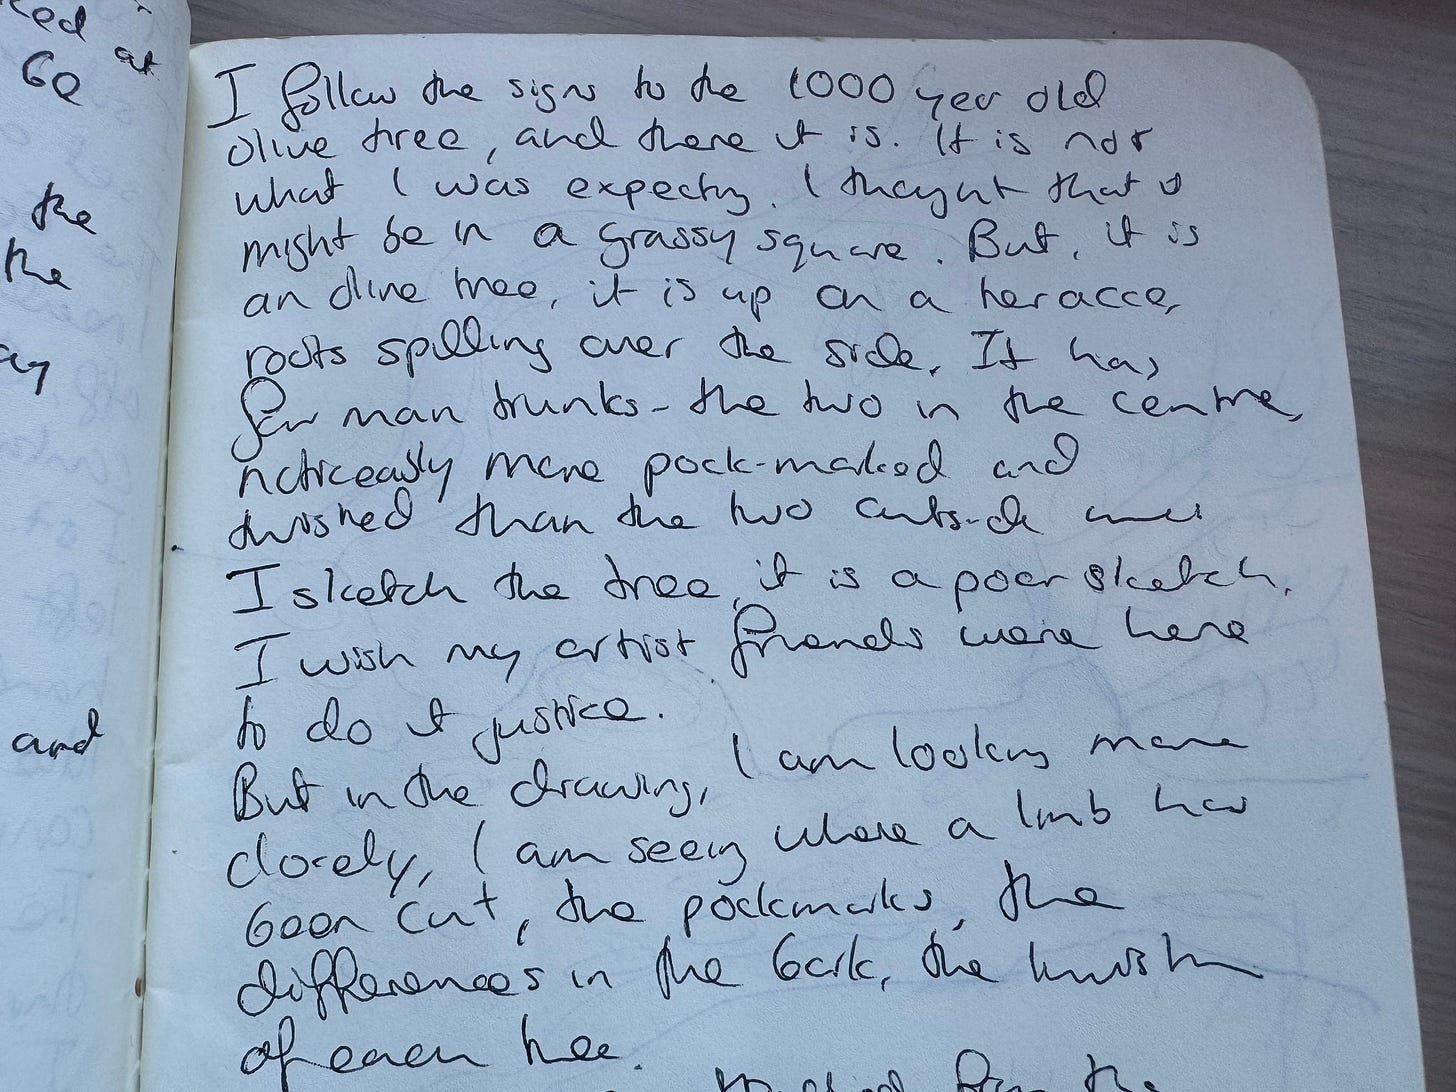 ked at
be
the
the
ay
and
I follow the signs to the 1000 year old
olive tree, and there it is. It is not
what I was expecting. I thought that it
might be in a grassy square. But, it is
an olive tree, it is up on a teracce,
roots spilling over the side. It has
four main trunks - the two in the centre,
noticeably more pock-marked and
twisted than the two outside ones
I sketch the tree, it is a poor sketch.
I wish my artist friends were here
to do it justice.
But in the drawing, I am looking more
closely, I am seeing where a limb has
been cut, the pockmarks, the
differences in the bark, the twist
of each tree.
from the